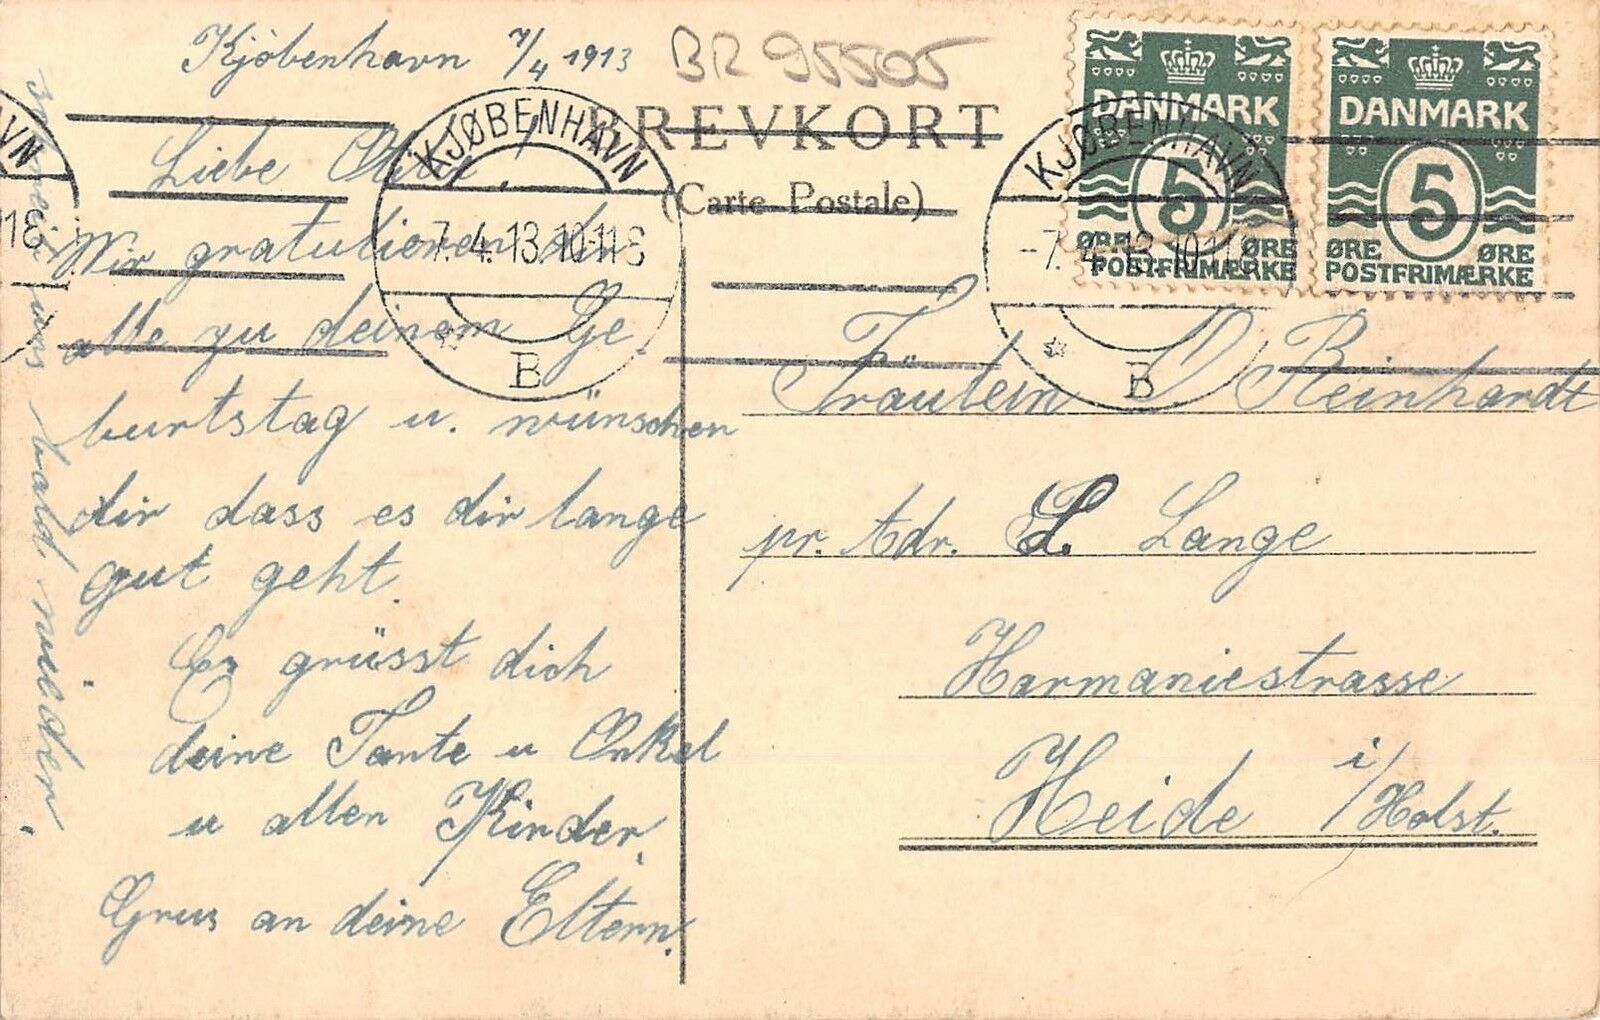 Kjöbenhavn 7/4 1913
BR 95505
BREVKORT
(Carte Postale)
Liebe
Wir gratulieren dir
alle zu deinem Ge
burtstag u. wünschen
dir dass es dir lange
gut geht.
Es grüsst dich
deine Tante u Onkel
u allen Kinder.
Grus an deine Eltern.
uns bald wieder.
KJØBENHAVN
7.4.13.10-11
B
KJØBENHAVN
-7.4.13.10-11
B
DANMARK
5
ØRE ØRE
POSTFRIMÆRKE
DANMARK
5
ØRE ØRE
POSTFRIMÆRKE
Fräulein O Reinhardt
pr. Adr. L. Lange
Harmaniestrasse
Heide i/Holst.